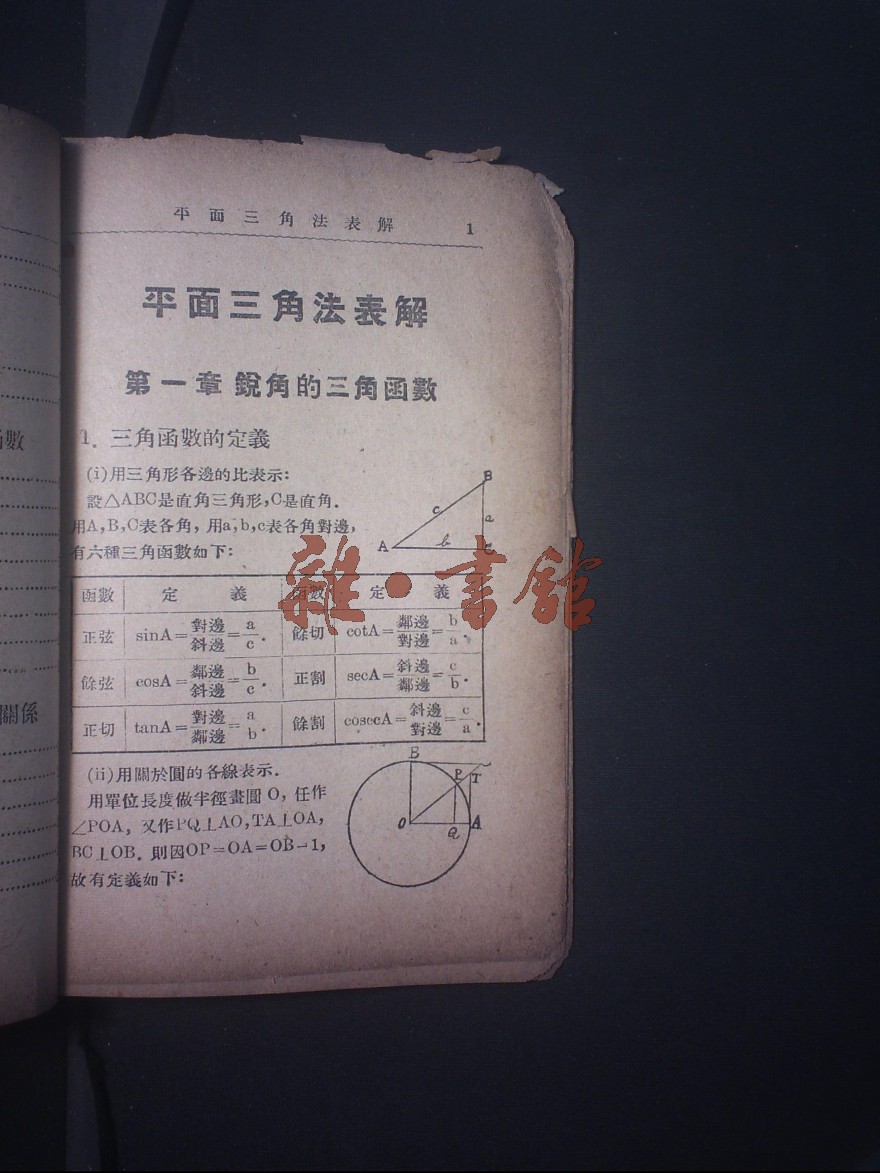 數
關係
平面三角法表解 1
平面三角法表解
第一章 銳角的三角函數
1. 三角函數的定義
(i)用三角形各邊的比表示:
設△ABC是直角三角形,C是直角.
用A,B,C表各角, 用a,b,c表各角對邊,
有六種三角函數如下:
B
c a
A b C
函數 定義 函數 定義
正弦 sinA=對邊/斜邊=a/c. 餘切 cotA=鄰邊/對邊=b/a.
餘弦 cosA=鄰邊/斜邊=b/c. 正割 secA=斜邊/鄰邊=c/b.
正切 tanA=對邊/鄰邊=a/b. 餘割 cosecA=斜邊/對邊=c/a.
(ii)用關於圓的各線表示.
用單位長度做半徑畫圓O, 任作
∠POA, 又作PQ⊥AO,TA⊥OA,
BC⊥OB. 則因OP=OA=OB=1,
故有定義如下:
B
P T
O Q A
雜·書館